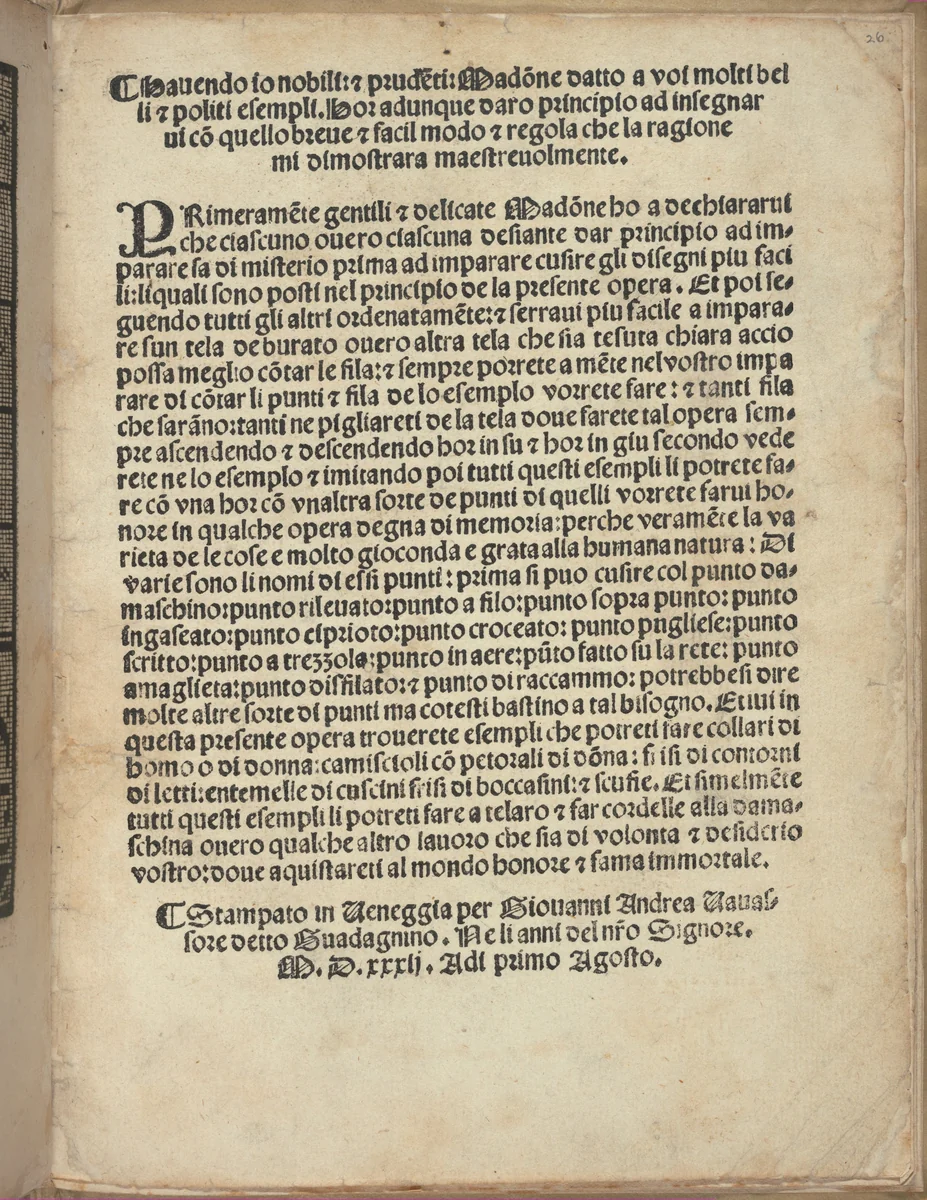 26
¶Hauendo io nobili:⁊ prudẽti:Madõne datto a voi molti bel
li ⁊ politi esempli.Hor adunque daro principio ad insegnar
ui cõ quello breue ⁊ facil modo ⁊ regola che la ragione
mi dimostrara maestreuolmente.
PRimeramẽte gentili ⁊ delicate Madõne ho a dechiararui
che ciascuno ouero ciascuna desiante dar principio ad im-
parare fa di misterio prima ad imparare cusire gli disegni piu faci
li:liquali sono posti nel principio de la presente opera. Et poi se-
guendo tutti gli altri ordenatamẽte:⁊ serraui piu facile a impara-
re sun tela de burato ouero altra tela che sia tesuta chiara accio
possa meglio cõtar le fila:⁊ sempre porrete a mẽte nel vostro impa
rare di cõtar li punti ⁊ fila de lo esemplo vorrete fare: ⁊ tanti fila
che sarãno:tanti ne pigliareti de la tela doue farete tal opera sem-
pre ascendendo ⁊ descendendo hor in su ⁊ hor in giu secondo vede
rete ne lo esemplo ⁊ imitando poi tutti questi esempli li potrete fa-
re cõ vna hor cõ vnaltra sorte de punti di quelli vorrete farui ho-
nore in qualche opera degna di memoria:perche veramẽte la va
rieta de le cose e molto gioconda e grata alla humana natura: Di
varie sono li nomi di essi punti: prima si puo cusire col punto da-
maschino:punto rileuato:punto a filo:punto sopra punto: punto
ingaseato:punto ciprioto:punto croceato: punto pugliese:punto
scritto:punto a trezzola:punto in aere:pũto fatto su la rete: punto
a maglieta:punto disfilato:⁊ punto di raccammo: potrebbesi dire
molte altre sorte di punti ma cotesti bastino a tal bisogno. Et iui in
questa presente opera trouerete esempli che potreti fare collari di
homo o di donna:camiscioli cõ petorali di dõna: frisi di contorni
di letti:entemelle di cuscini frisi di boccasini:⁊ scufie. Et simelmẽte
tutti questi esempli li potreti fare a telaro ⁊ far cordelle alla dama-
schina ouero qualche altro lauoro che sia di volonta ⁊ desiderio
vostro:doue aquistareti al mondo honore ⁊ fama immortale.
¶Stampato in Veneggia per Giouanni Andrea Vauas-
sore detto Guadagnino. Ne li anni del nr̃o Signore.
M. D. xxxij. Adi primo Agosto.